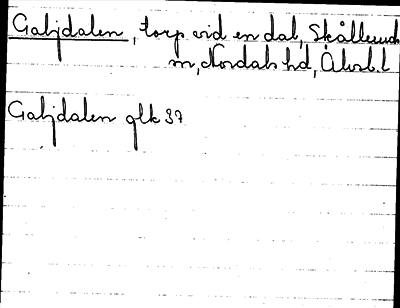 Galjdalen, torp vid en dal, Skållerud
sn, Nordals hd, Älvsb. l
Galjdalen glk 37